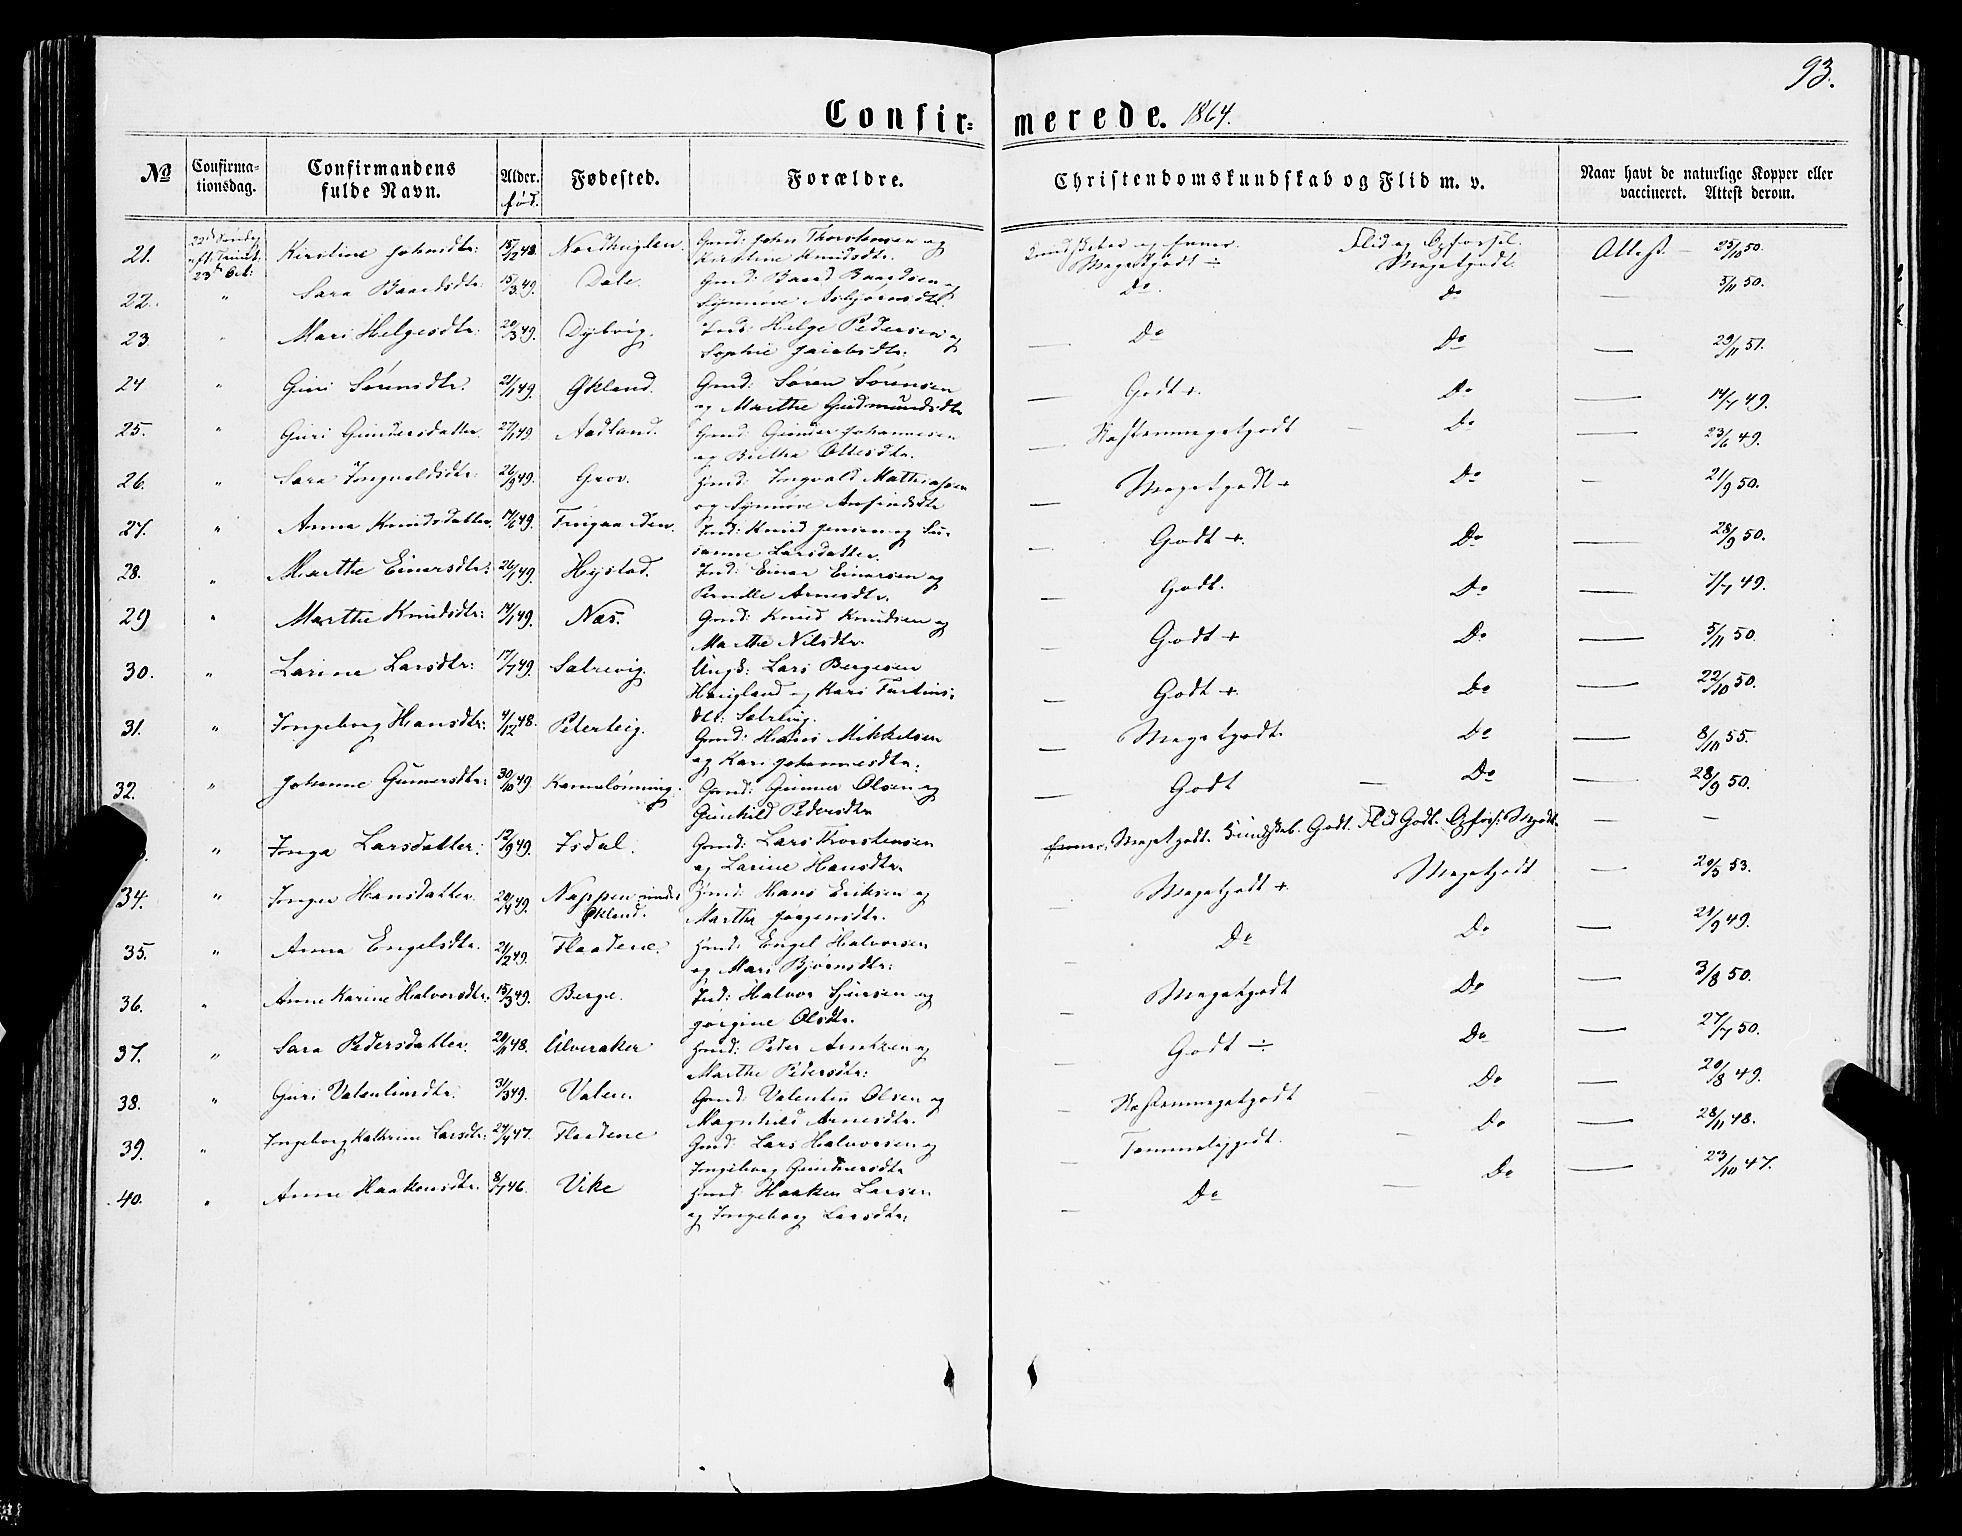 93.
Confirmerede. 1864.
No Confirmationsdag. Confirmandens fulde Navn. Alder. fød. Fødested. Forældre. Christendomskundskab og Flid m. v. Naar havt de naturlige Kopper eller vaccineret. Attest derom.
21. 23d Oct: Kirstine Johnsdtr: 15/12 48. Nordhuglen. Gmd: John Thorstensen og Kirstine Knudsdtr. Kundskaber og Evner. Megetgodt ÷ Flid og Opførsel. Megetgodt. Attest — 25/10 50.
22. " Sara Baardsdtr: 15/3 49. Dale. Gmd: Baard Baardsen og Synnøve Asbjørnsdtr Do. Do — 5/11 50.
23. " Mari Helgesdtr. 20/3 49. Dybvig. Ind: Helge Pedersen og Sophie Jacobsdtr. — Do Do — 29/11 51.
24 " Guri Sørensdtr. 21/1 49. Økland. Gmd: Søren Sørensen og Marthe Gudmundsdtr — Godt+. Do — 14/7 49.
25. " Guri Gundersdatter. 27/1 49 Aadland. Gmd: Gunder Johannesen og Birtha Ottesdtr. — Næstenmegetgodt — Do — 23/6 49.
26. " Sara Ingvaldsdtr. 26/9 49. Grov. Hmd: Ingvald Mathiassen og Synnøve Anfindsdtr — Megetgodt + Do — 21/9 50.
27. " Anna Knudsdatter 17/6 49. Teigaarden. Ind: Knud Jensen og Susanne Larsdatter. — Godt +. Do — 28/9 50.
28. " Marthe Einarsdtr: 26/1 49. Hystad. Ind: Einar Einarsen og Pernelle Arnesdtr. — Godt. Do — 7/7 49.
29 " Marthe Knudsdtr: 14/1 49. Næs. Gmd: Knud Knudsen og Marthe Nilsdtr. — Godt + Do — 5/11 50.
30. " Larine Larsdtr: 17/7 49. Satrevig. Ungk: Lars Bergesen Haugland og Kari Tertinsdtr: — Godt +. Do — 22/10 50.
31. " Ingeborg Hansdtr: 4/12 48. Peterteig. Gmd: Hans Mikkelsen og Kari Johannesdtr: — Megetgodt. Do — 8/10 55.
32. " Johanne Gunnersdtr: 30/10 49. Gmd: Gunner Olsen og Gunhild Pedersdtr — Godt — Do — 28/9 50.
" Inga Larsdatter: 12/9 49. Isdal. Gmd: Lars Thorstensen og Larine Hansdtr. Evner. Megetgodt. Kundskab. Godt. Flid Godt. Opførs: Mgodt. — —
34. " Inger Hansdatter 20/4 49. Nappen under Økland. Hmd: Hans Eriksen og Marthe Jørgensdtr. — Megetgodt + Megetgodt — 20/5 53.
35. " Anna Engelsdtr. 21/2 49. Flaadene. Hmd: Engel Halvorsen og Mari Bjørnsdtr: — Do Do — 21/9 49.
36. " Anne Karine Halvorsdtr: 15/3 49. Berge. Ind: Halvor Sjursen og Jørgine Olsdtr. — Megetgodt Do — 3/8 50.
37. " Sara Pedersdatter. 20/11 48. Ulveraker Hmd: Peder Arntzen og Marthe Pedersdtr: — Godt ÷. Do — 27/7 50.
38. " Guri Valentinsdtr. 31/3 49. Valen. Gmd: Valentin Olsen og Magnhild Arnesdtr. — Næstenmegetgodt Do — 20/8 49.
39. " Ingeborg Kathrine Larsdtr: 24/4 47. Flaadene Gmd: Lars Halvorsen og Ingeborg Gundersdtr — Temmeliggodt. — Do — 28/11 48.
40. " Anne Haakensdtr. 8/7 46. Vike Hmd: Haaken Larsen og Ingeborg Larsdtr: — Do — Do — 23/10 47.